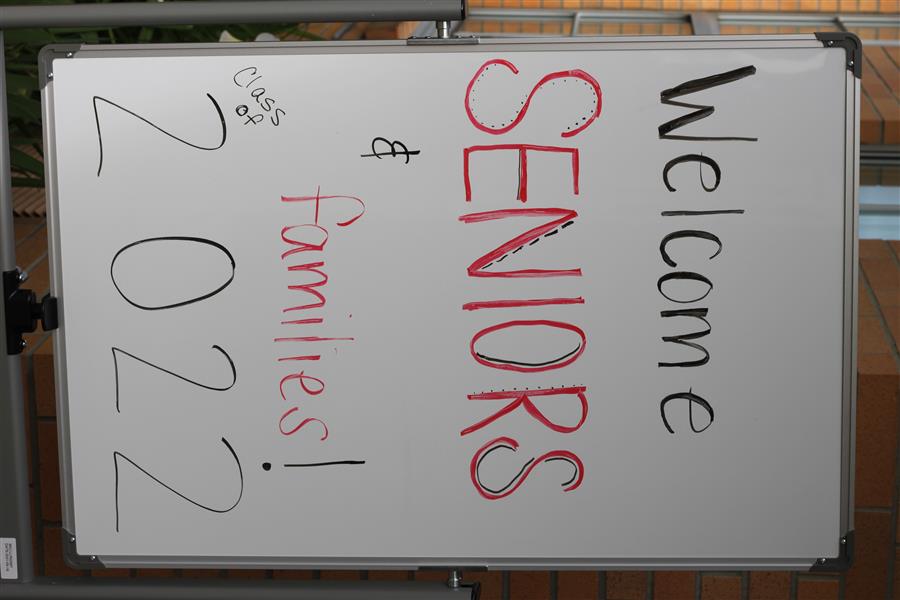 Welcome
SENIORS
& families!
Class of
2022